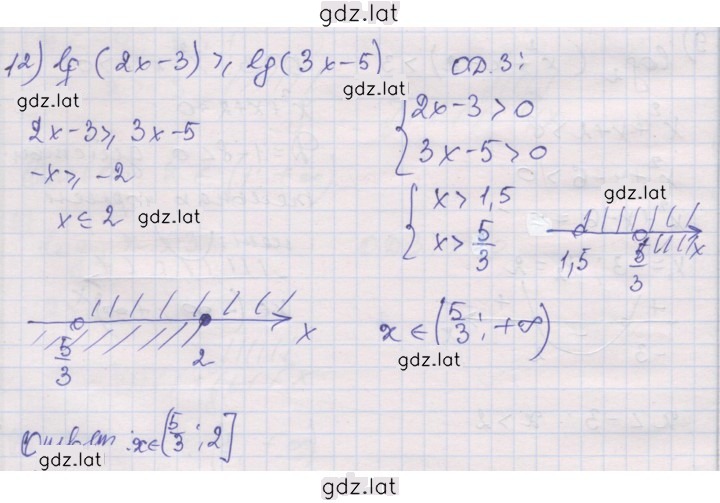 gdz.lat
12) lg (2x-3) ⩾ lg(3x-5)
gdz.lat
2x-3 ⩾ 3x-5
-x ⩾ -2
x ⩽ 2 gdz.lat
О.Д.З:
gdz.lat
{2x-3>0
3x-5>0
{x>1,5
x> 5/3
gdz.lat
1,5 5/3 x
5/3 2 x
x∈(5/3; +∞)
gdz.lat
Ответ: x∈(5/3; 2]
gdz.lat
gdz.lat